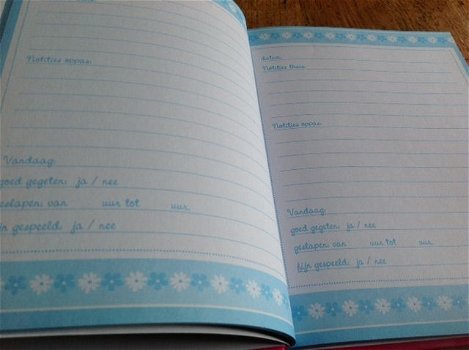 Notities oppas:
Vandaag:
goed gegeten: ja / nee
geslapen: van uur tot uur.
fijn gespeeld: ja / nee
datum:
Notities thuis:
Notities oppas:
Vandaag:
goed gegeten: ja / nee
geslapen: van uur tot uur.
fijn gespeeld: ja / nee